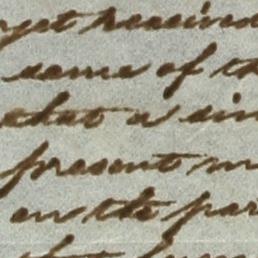 yet received
same of th
that a sin
present m
on the par